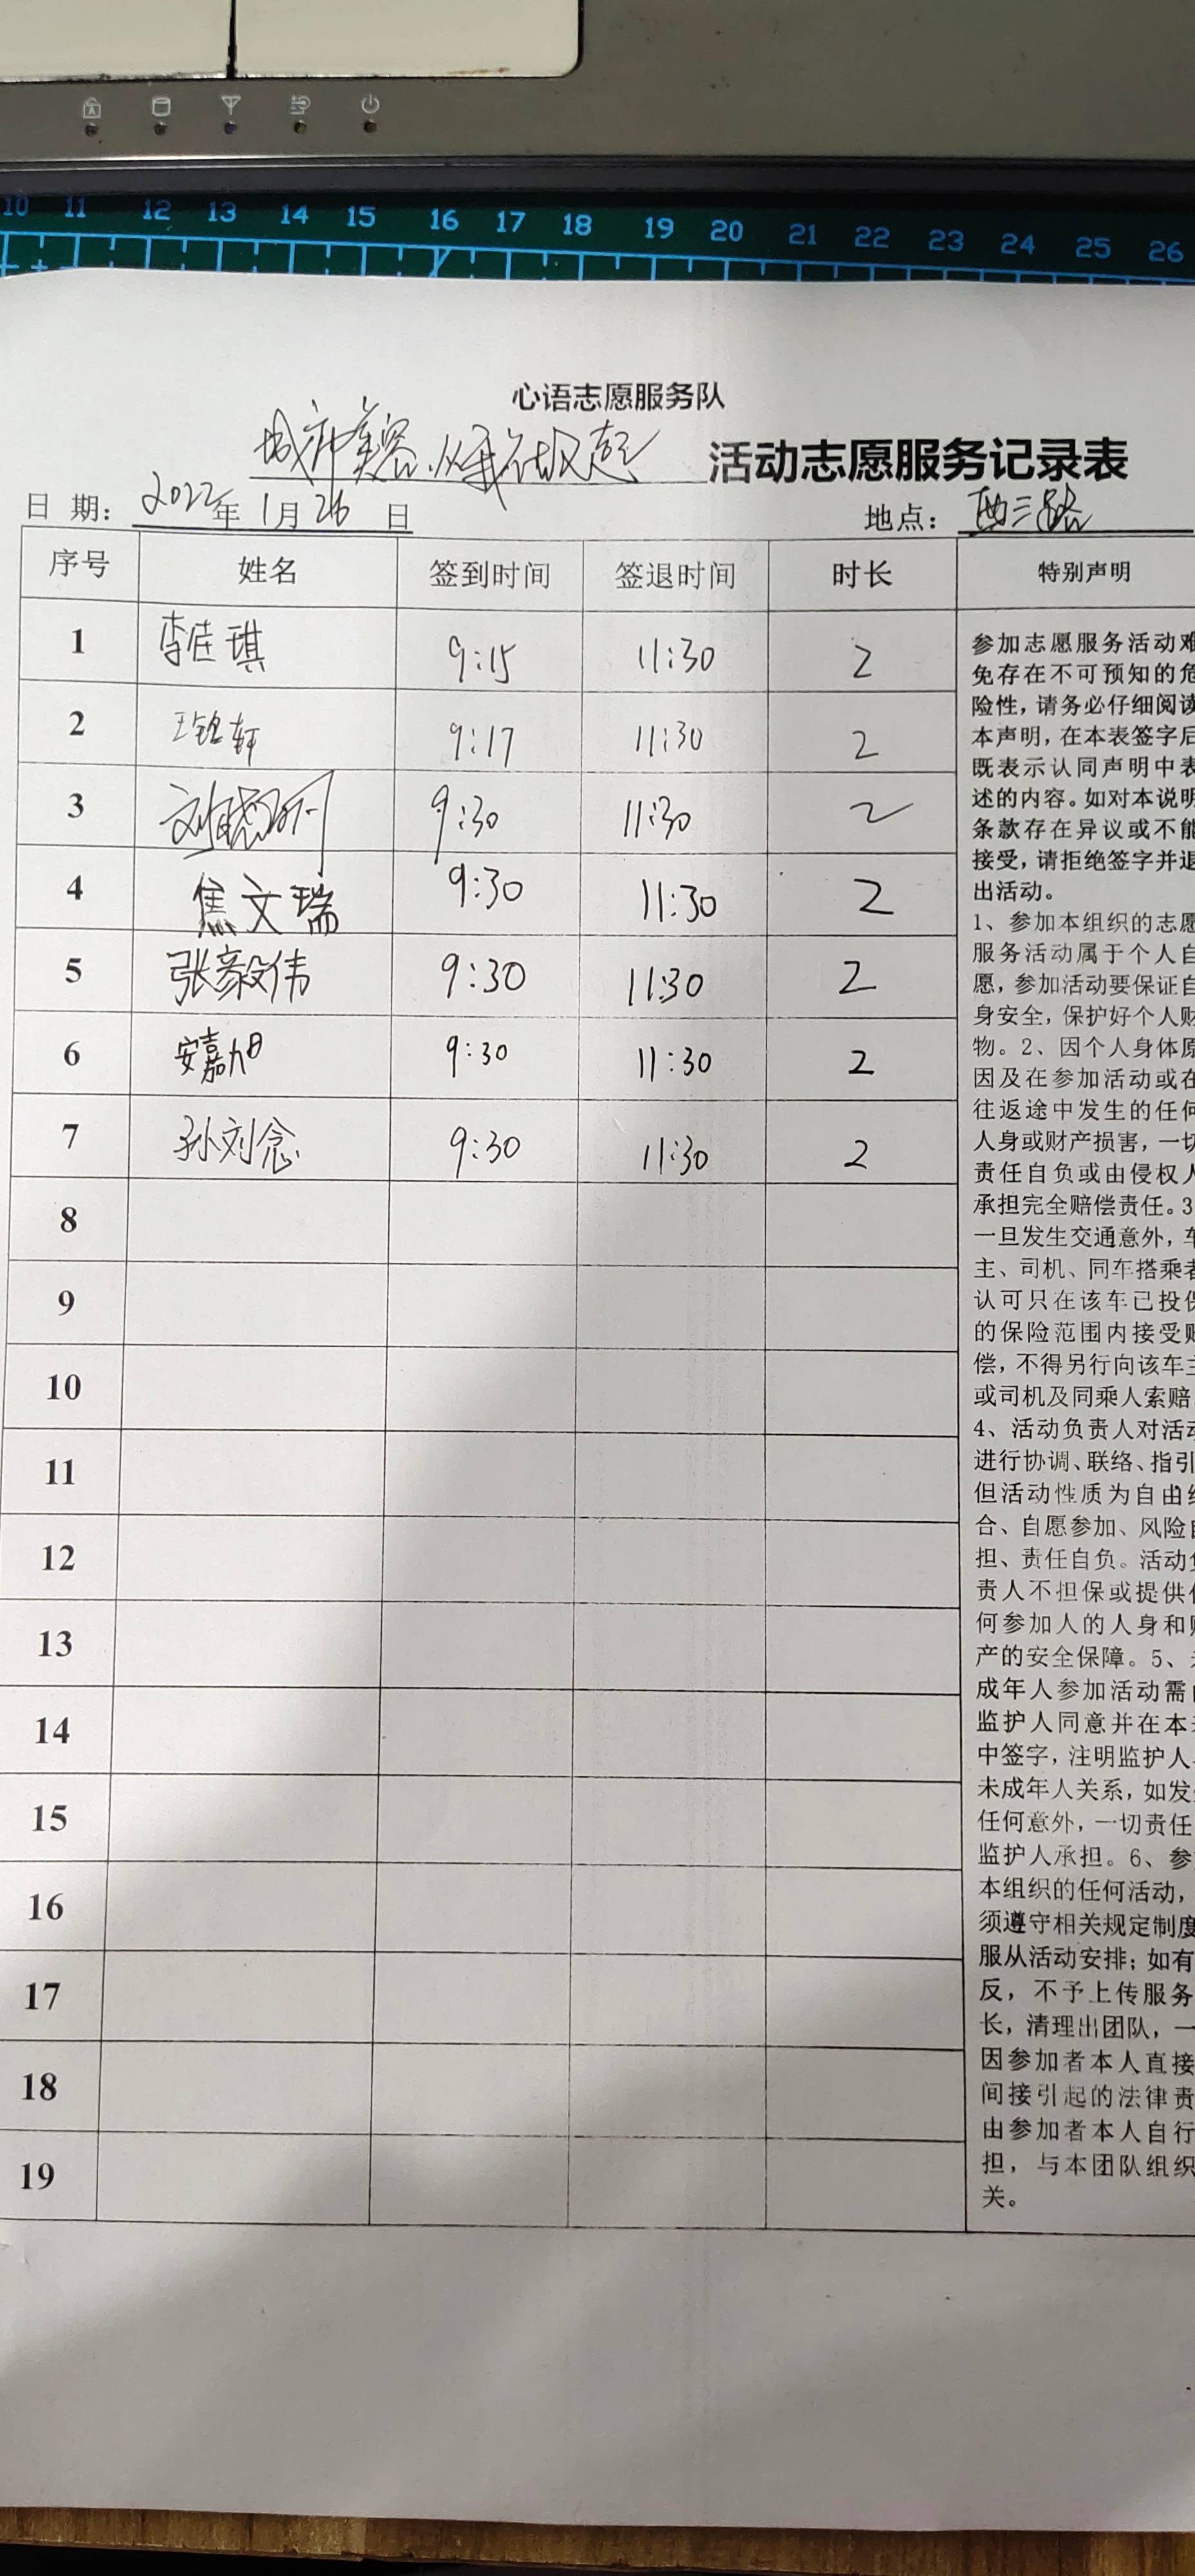 10 11 12 13 14 15 16 17 18 19 20 21 22 23 24 25 26
心语志愿服务队
城市美容,从我做起 活动志愿服务记录表
日 期: 2022年1月26日 地点: 西三路
序号 姓名 签到时间 签退时间 时长 特别声明
1 李佳琪 9:15 11:30 2
2 王铭轩 9:17 11:30 2
3 刘 9:30 11:30 2
4 焦文瑞 9:30 11:30 2
5 张毅伟 9:30 11:30 2
6 安嘉旭 9:30 11:30 2
7 孙刘念 9:30 11:30 2
8
9
10
11
12
13
14
15
16
17
18
19
参加志愿服务活动难
免存在不可预知的危
险性,请务必仔细阅读
本声明,在本表签字后
既表示认同声明中表
述的内容。如对本说明
条款存在异议或不能
接受,请拒绝签字并退
出活动。
1、参加本组织的志愿
服务活动属于个人自
愿,参加活动要保证自
身安全,保护好个人财
物。2、因个人身体原
因及在参加活动或在
往返途中发生的任何
人身或财产损害,一切
责任自负或由侵权人
承担完全赔偿责任。3
一旦发生交通意外,车
主、司机、同车搭乘者
认可只在该车已投保
的保险范围内接受赔
偿,不得另行向该车主
或司机及同乘人索赔
4、活动负责人对活动
进行协调、联络、指引
但活动性质为自由组
合、自愿参加、风险自
担、责任自负。活动负
责人不担保或提供任
何参加人的人身和财
产的安全保障。5、未
成年人参加活动需由
监护人同意并在本表
中签字,注明监护人与
未成年人关系,如发生
任何意外,一切责任
监护人承担。6、参
本组织的任何活动,
须遵守相关规定制度
服从活动安排;如有
反,不予上传服务
长,清理出团队,一
因参加者本人直接
间接引起的法律责
由参加者本人自行
担,与本团队组织
关。